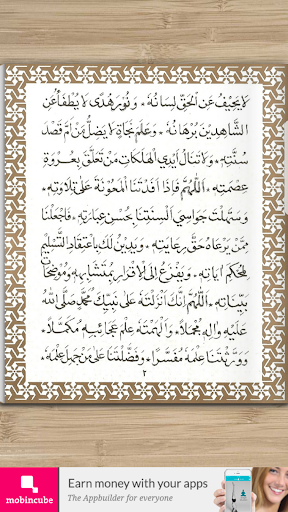 لَا يَحِيْفُ عَنِ الْحَقِّ لِسَانُهُ ۰ وَنُوْرَ هُدًى لَا يُطْفَأُ عَنِ
الشَّاهِدِيْنَ بُرْهَانُهُ ۰ وَعَلَمَ نَجَاةٍ لَا يَضِلُّ مَنْ اَمَّ قَصْدَ
سُنَّتِهِ ۰ وَلَا تَنَالُ اَيْدِي الْهَلَكَاتِ مَنْ تَعَلَّقَ بِعُرْوَةِ
عِصْمَتِهِ ۰ اَللّٰهُمَّ فَاِذَا اَفَدْتَنَا الْمَعُوْنَةَ عَلَى تِلَاوَتِهِ ۰
وَسَهَّلْتَ جَوَاسِيَ اَلْسِنَتِنَا بِحُسْنِ عِبَارَتِهِ ۰ فَاجْعَلْنَا
مِمَّنْ يَرْعَاهُ حَقَّ رِعَايَتِهِ ۰ وَيَدِيْنُ لَكَ بِاعْتِقَادِ التَّسْلِيْمِ
لِمُحْكَمِ اٰيَاتِهِ ۰ وَيَفْزَعُ اِلَى الْاِقْرَارِ بِمُتَشَابِهِهِ وَمُوْضَحَاتِ
بَيِّنَاتِهِ ۰ اَللّٰهُمَّ اِنَّكَ اَنْزَلْتَهُ عَلَى نَبِيِّكَ مُحَمَّدٍ صَلَّى اللهُ
عَلَيْهِ وَاٰلِهِ مُجْمَلًا ۰ وَاَلْهَمْتَهُ عِلْمَ عَجَائِبِهِ مُكَمَّلًا ۰
وَوَرَّثْتَنَا عِلْمَهُ مُفَسَّرًا ۰ وَفَضَّلْتَنَا عَلَى مَنْ جَهِلَ عِلْمَهُ ۰
٢
Earn money with your apps
The Appbuilder for everyone
mobincube